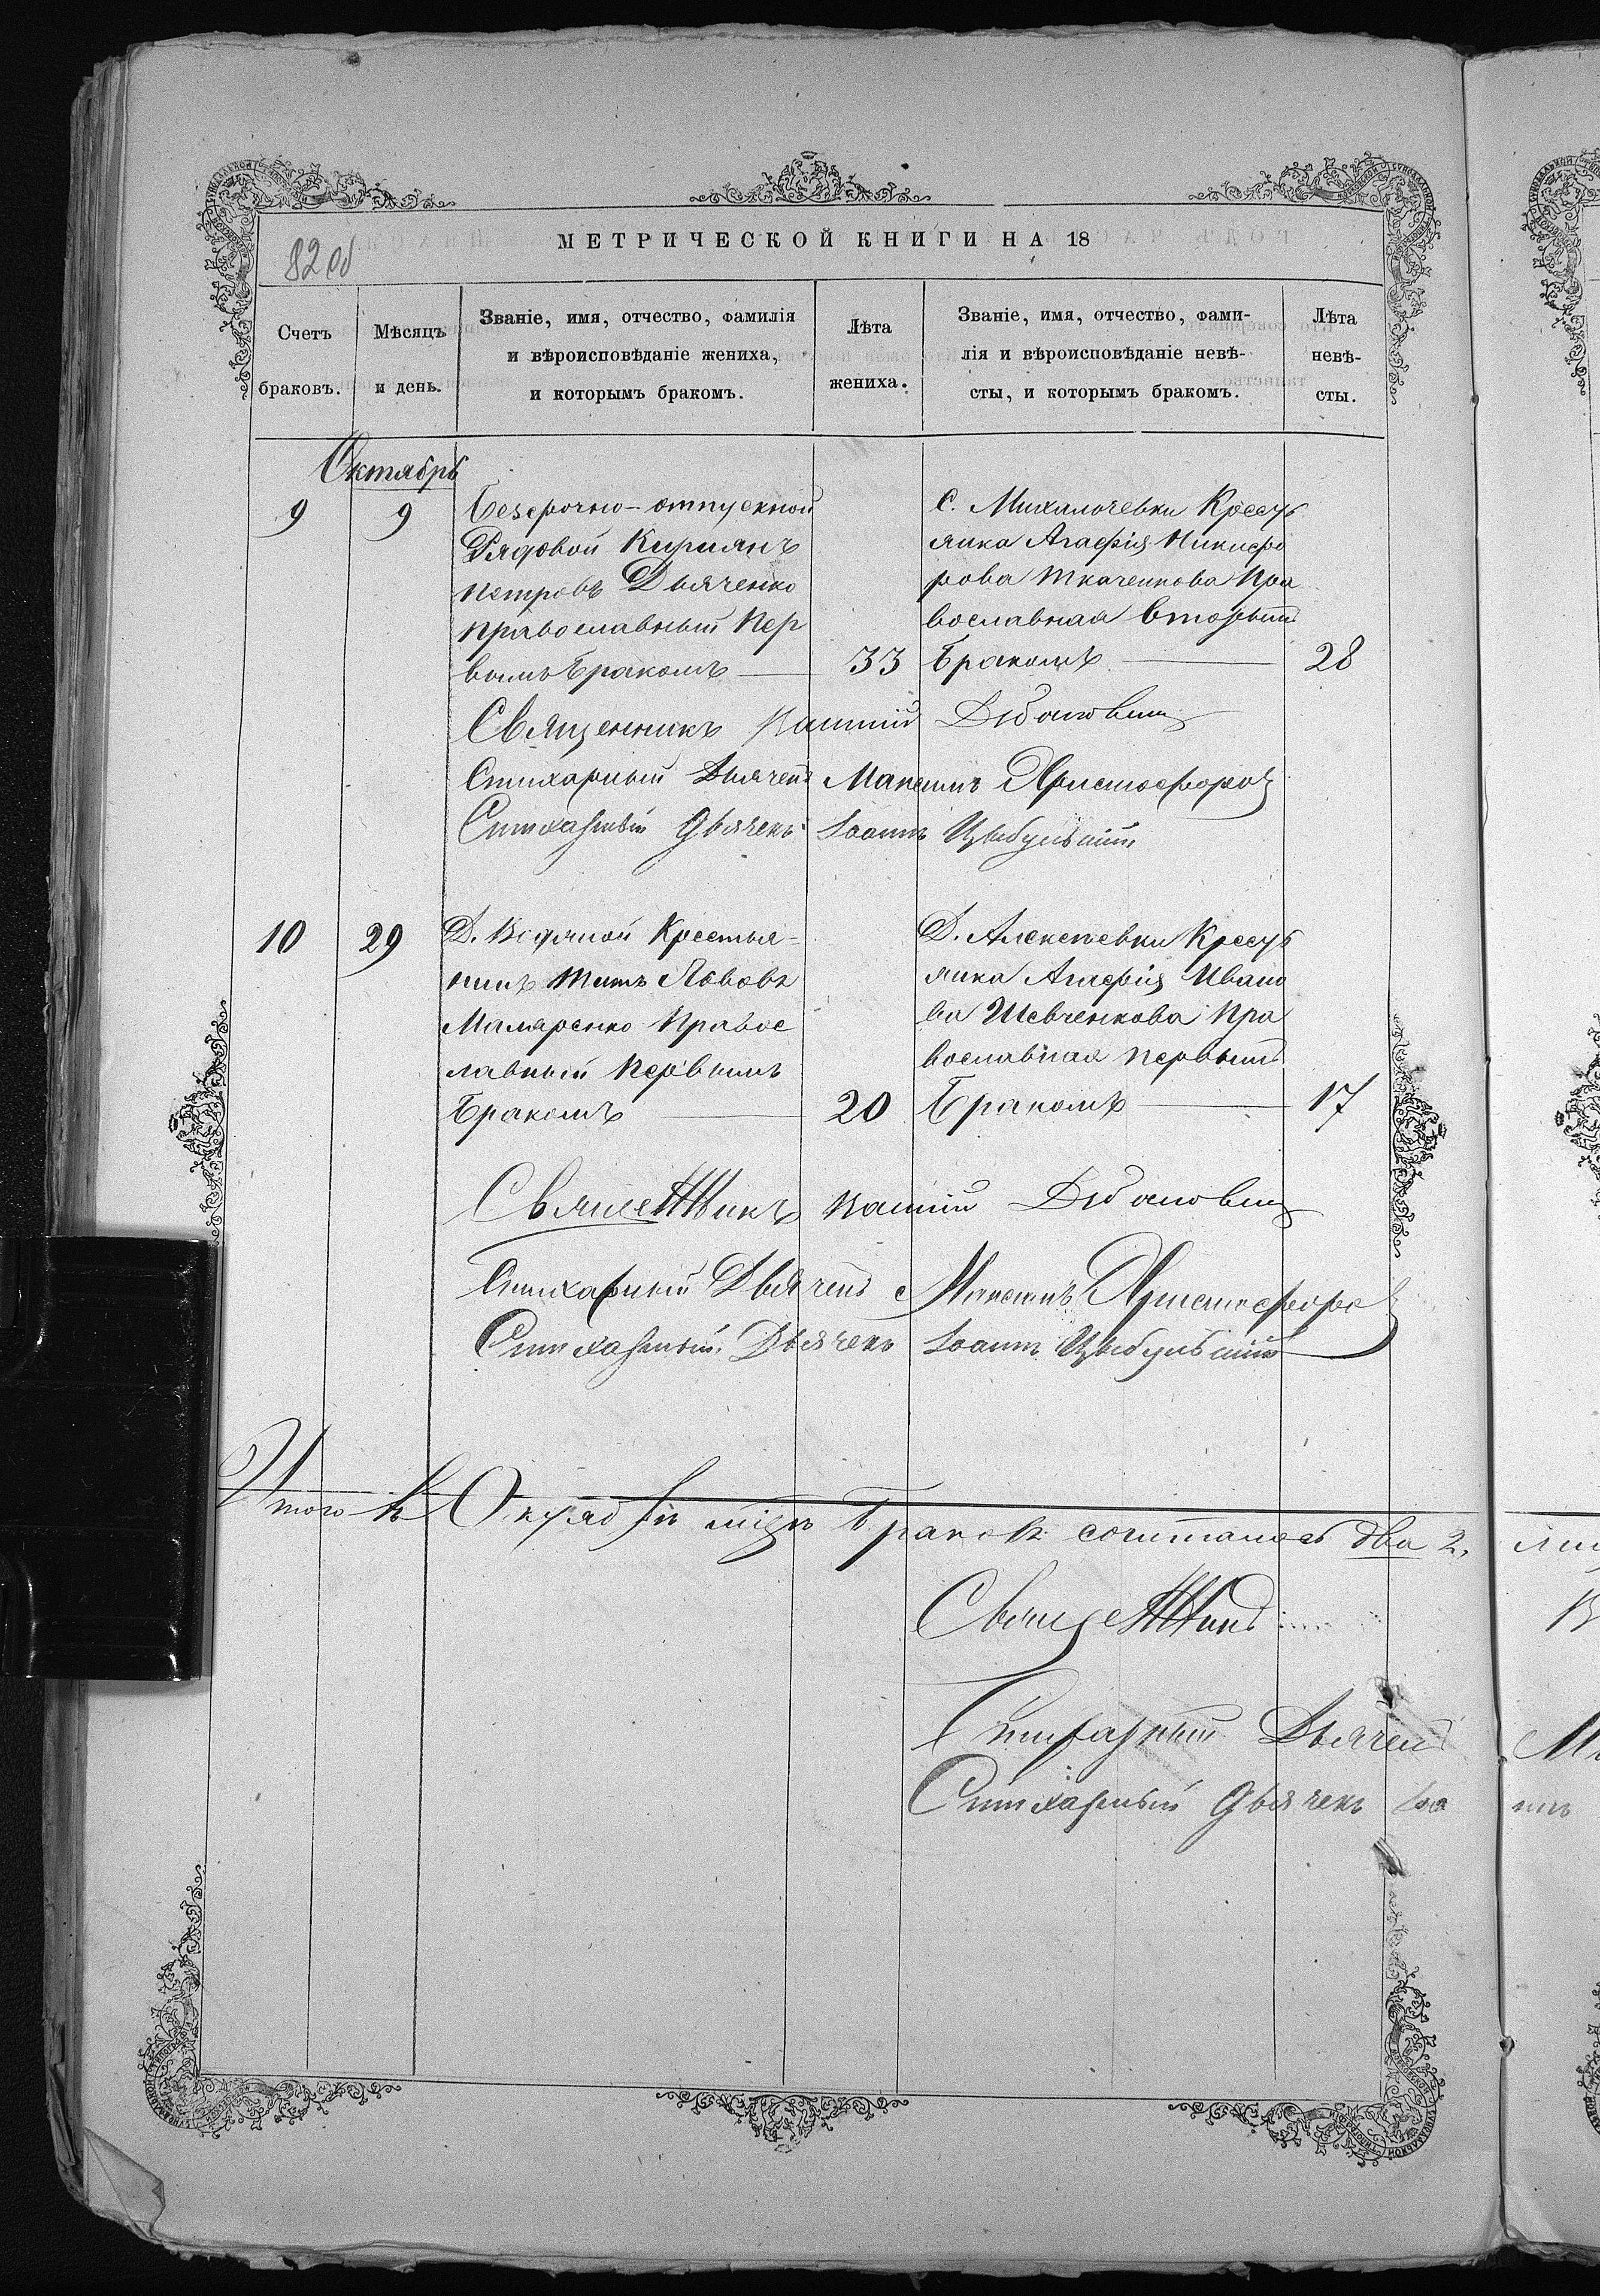 82 об
МЕТРИЧЕСКОЙ КНИГИ НА 18
Счетъ
браковъ.
Мѣсяцъ
и день.
Званіе, имя, отчество, фамилія
и вѣроисповѣданіе жениха,
и которымъ бракомъ.
Лѣта
жениха.
Званіе, имя, отчество, фами-
лія и вѣроисповѣданіе невѣ-
сты, и которымъ бракомъ.
Лѣта
невѣ-
сты.
Октябрь
9
9
Безсрочно-отпускной
Рядовой Киріянъ
Петровъ Дьяченко
Православный Пер
вымъ Бракомъ
33
С. Михалочевки Крест
янка Агафія Никифо
рова Ткаченкова Пра
вославная Вторымъ
Бракомъ
28
Священникъ
Стихарный Дьячекъ Максимъ Христофоров
Стихарный Дьячекъ Іоаннъ Цыбульскій
10
29
Д. Водяной Крестья-
нинъ Титъ Львовъ
Маляренко Правос
лавный Первымъ
Бракомъ
20
Д. Алексѣевки Крест
янка Агафія Ивано
ва Шевченкова Пра
вославная Первымъ
Бракомъ
17
Священникъ
Стихарный Дьячекъ Максимъ Христофоров
Стихарный Дьячекъ Іоаннъ Цыбульскій
Итого въ Октябрѣ мцѣ Браковъ состоялось два 2,
Священникъ
Стихарный Дьячекъ
Стихарный Дьячекъ Іоа
ннъ